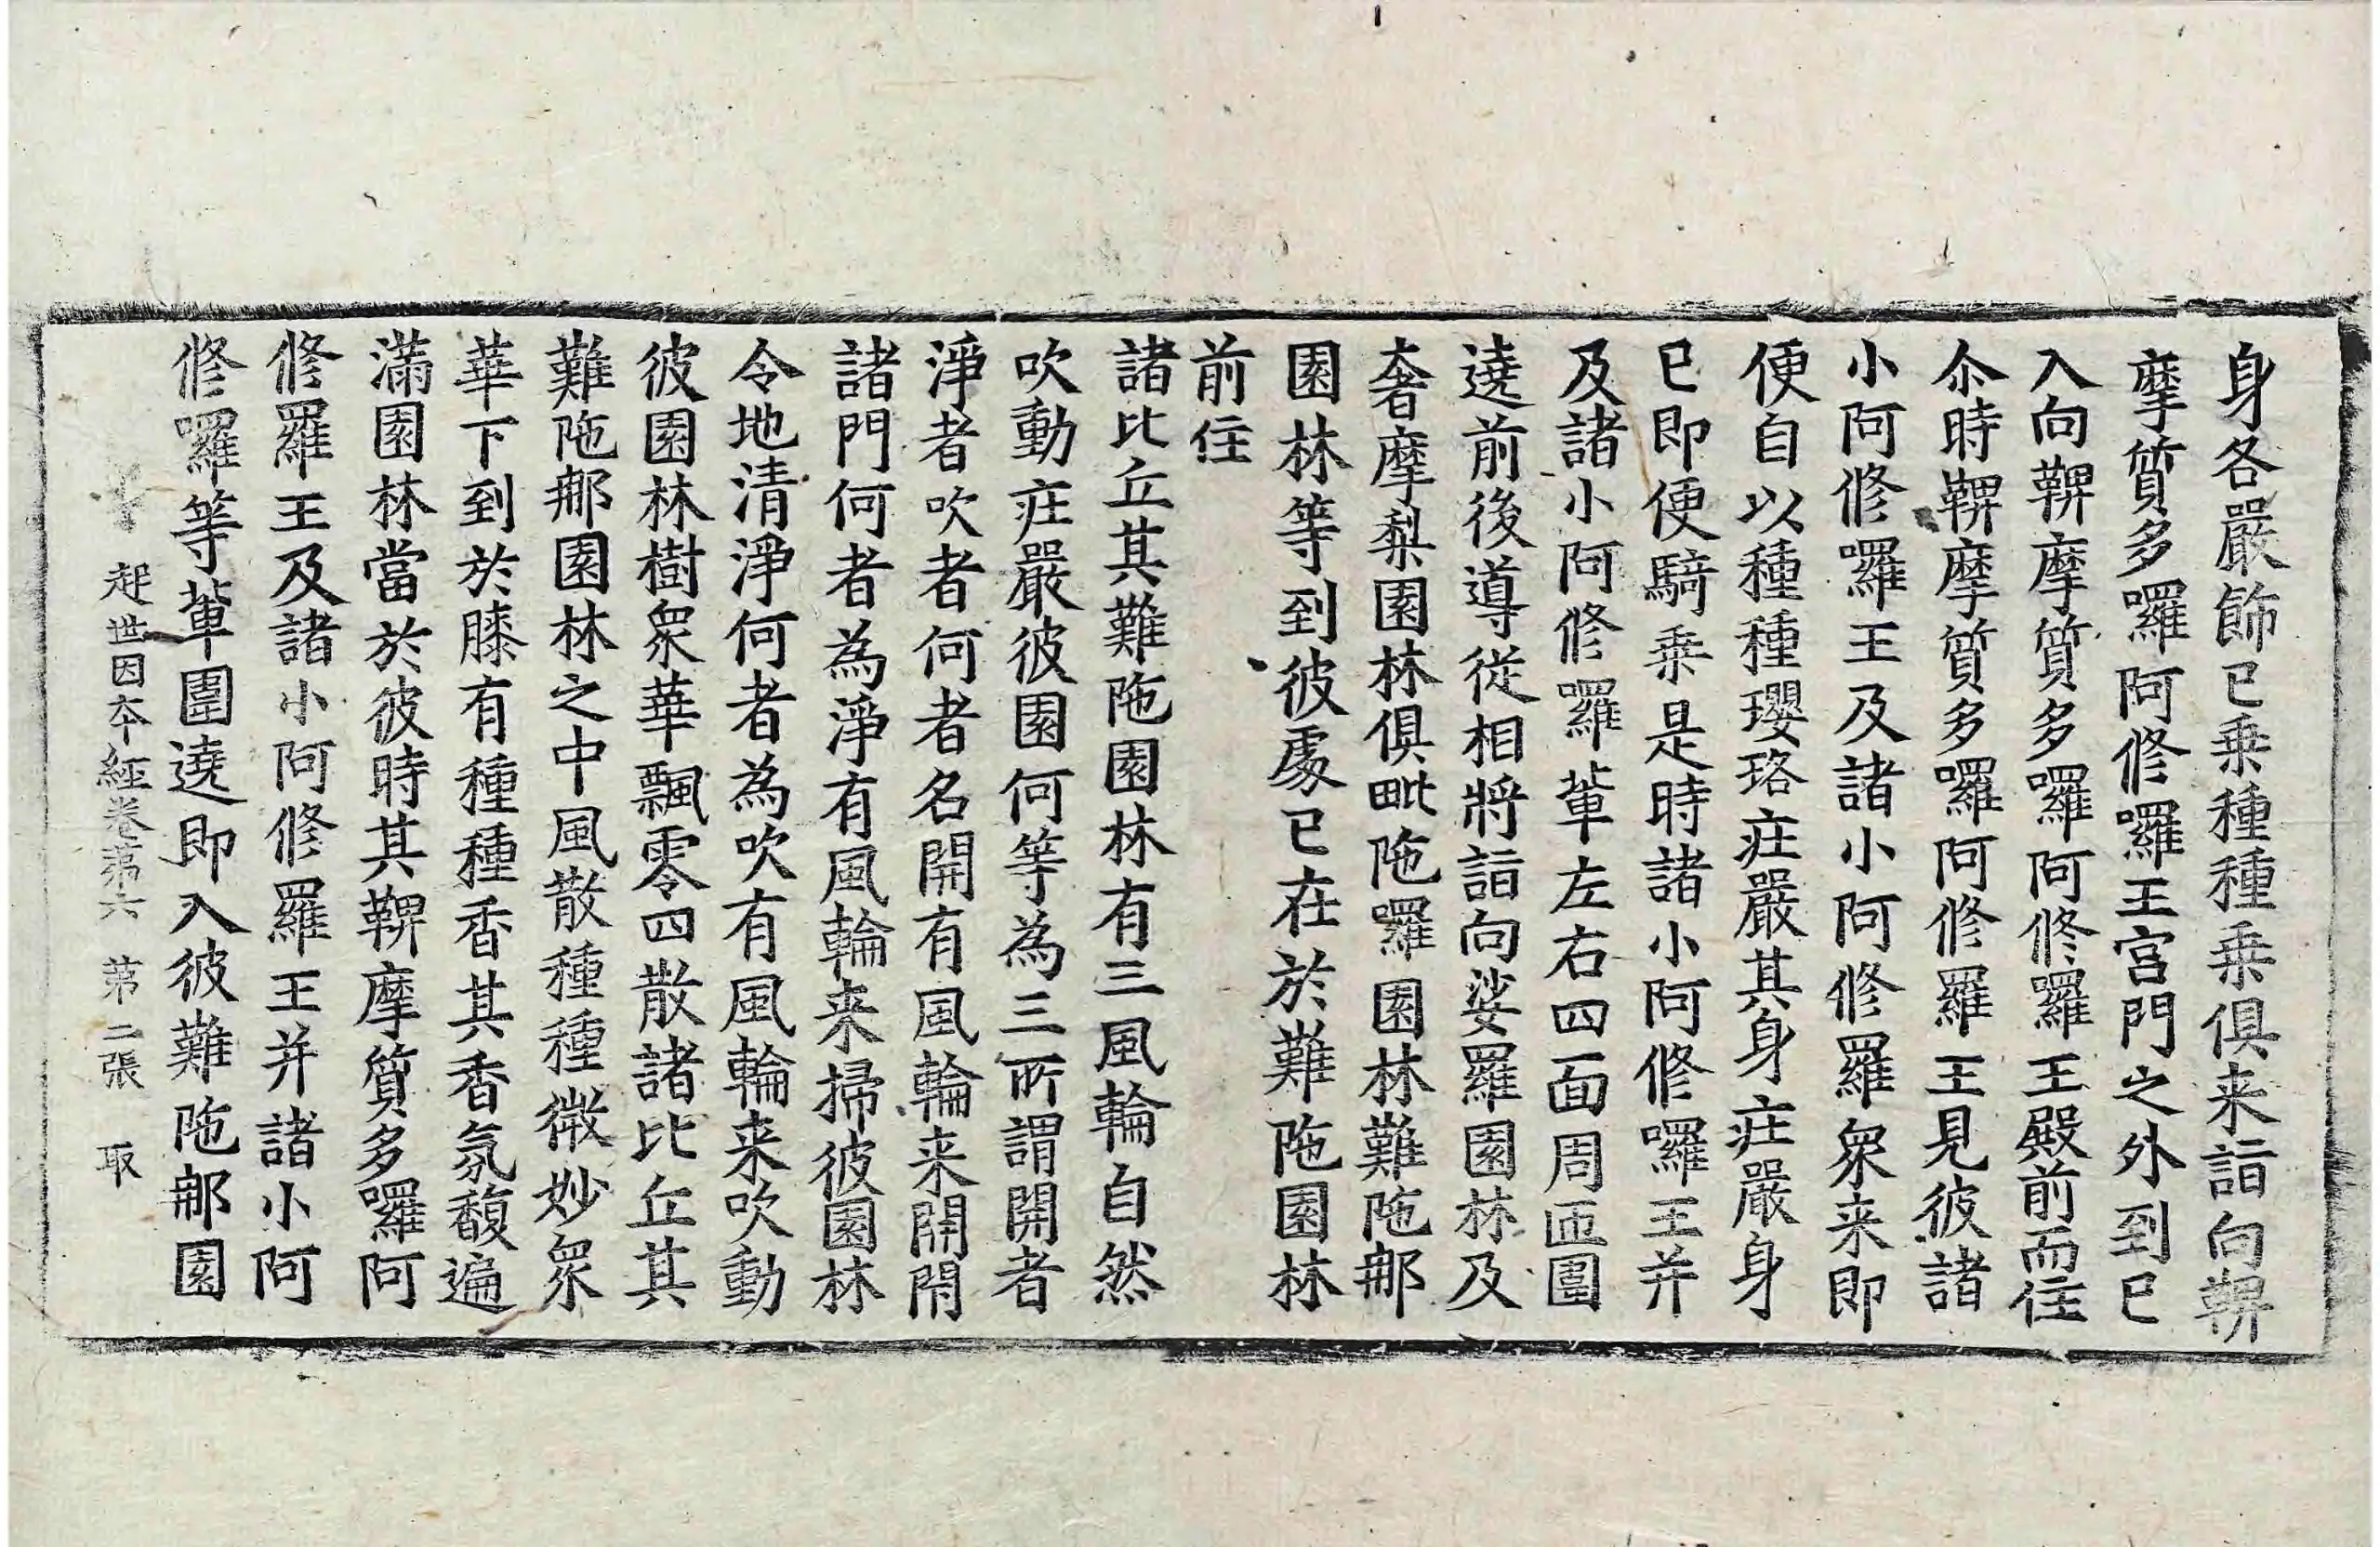 身各嚴飾已乗種種乗俱来詣向鞞
摩質多囉阿修囉王宫門之外到已
入向鞞摩質多囉阿修囉王殿前而住
尒時鞞摩質多囉阿修羅王見彼諸
小阿修囉王及諸小阿修羅衆来即
便自以種種瓔珞莊嚴其身莊嚴身
已即便騎乗是時諸小阿修囉王并
及諸小阿修囉軰左右四面周匝圍
遶前後導從相將詣向娑羅園林及
奢摩梨園林俱毗陁囉園林難陁那
園林等到彼處已在於難陁園林
前住
諸比丘其難陁園林有三風輪自然
吹動莊嚴彼園何等為三所謂開者
淨者吹者何者名開有風輪来開閇
諸門何者為淨有風輪来掃彼園林
令地清淨何者為吹有風輪来吹動
彼園林樹衆華飄零四散諸比丘其
難陁那園林之中風散種種微妙衆
華下到於膝有種種香其香氛馥遍
滿園林當於彼時其鞞摩質多囉阿
修羅王及諸小阿修羅王并諸小阿
修囉等軰圍遶即入彼難陁那園
起世因夲經卷第六　第二張　取